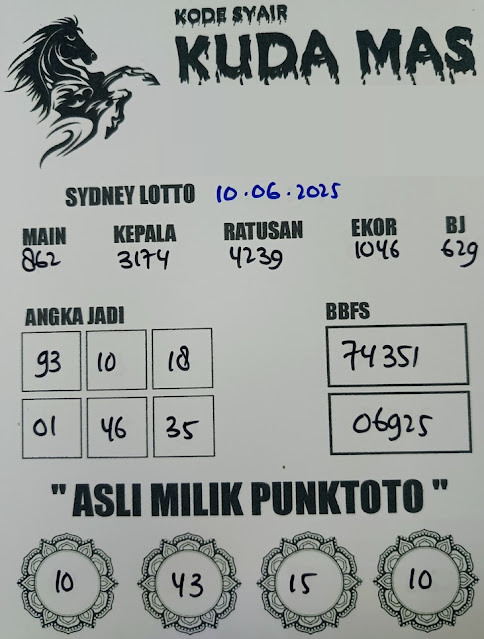 KODE SYAIR
KUDA MAS
SYDNEY LOTTO 10.06.2025
MAIN KEPALA RATUSAN EKOR BJ
862 3174 4239 1046 629
ANGKA JADI BBFS
93 10 18 74351
01 46 35 06925
" ASLI MILIK PUNKTOTO "
10 43 15 10